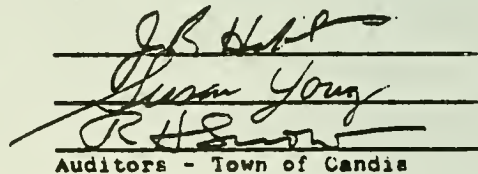 J B H
Susan Young
R H Snow
Auditors - Town of Candia